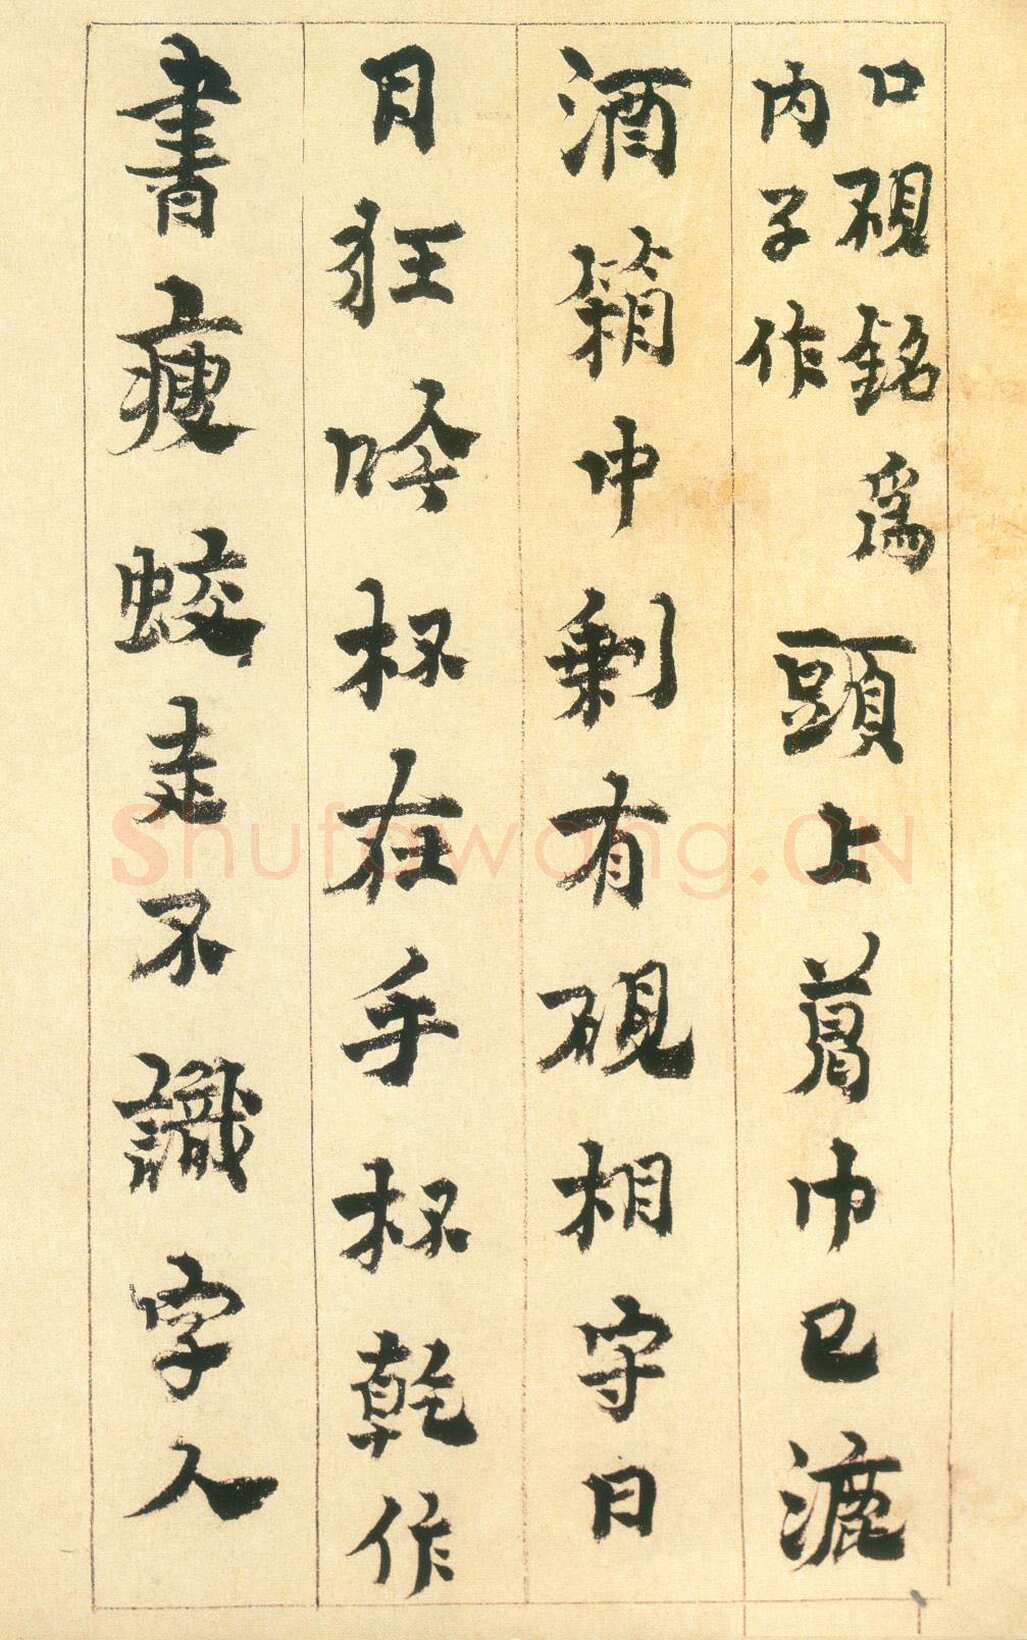 口硯銘為
内子作
頭上葛巾已漉
酒箱中剩有硯相守日
月狂吟杯在手杯乾作
書瘦蛟走不識字人
Shufawang.CN